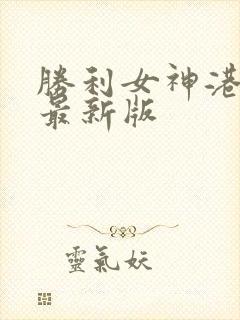 勝利女神港
最新版
靈氣妖